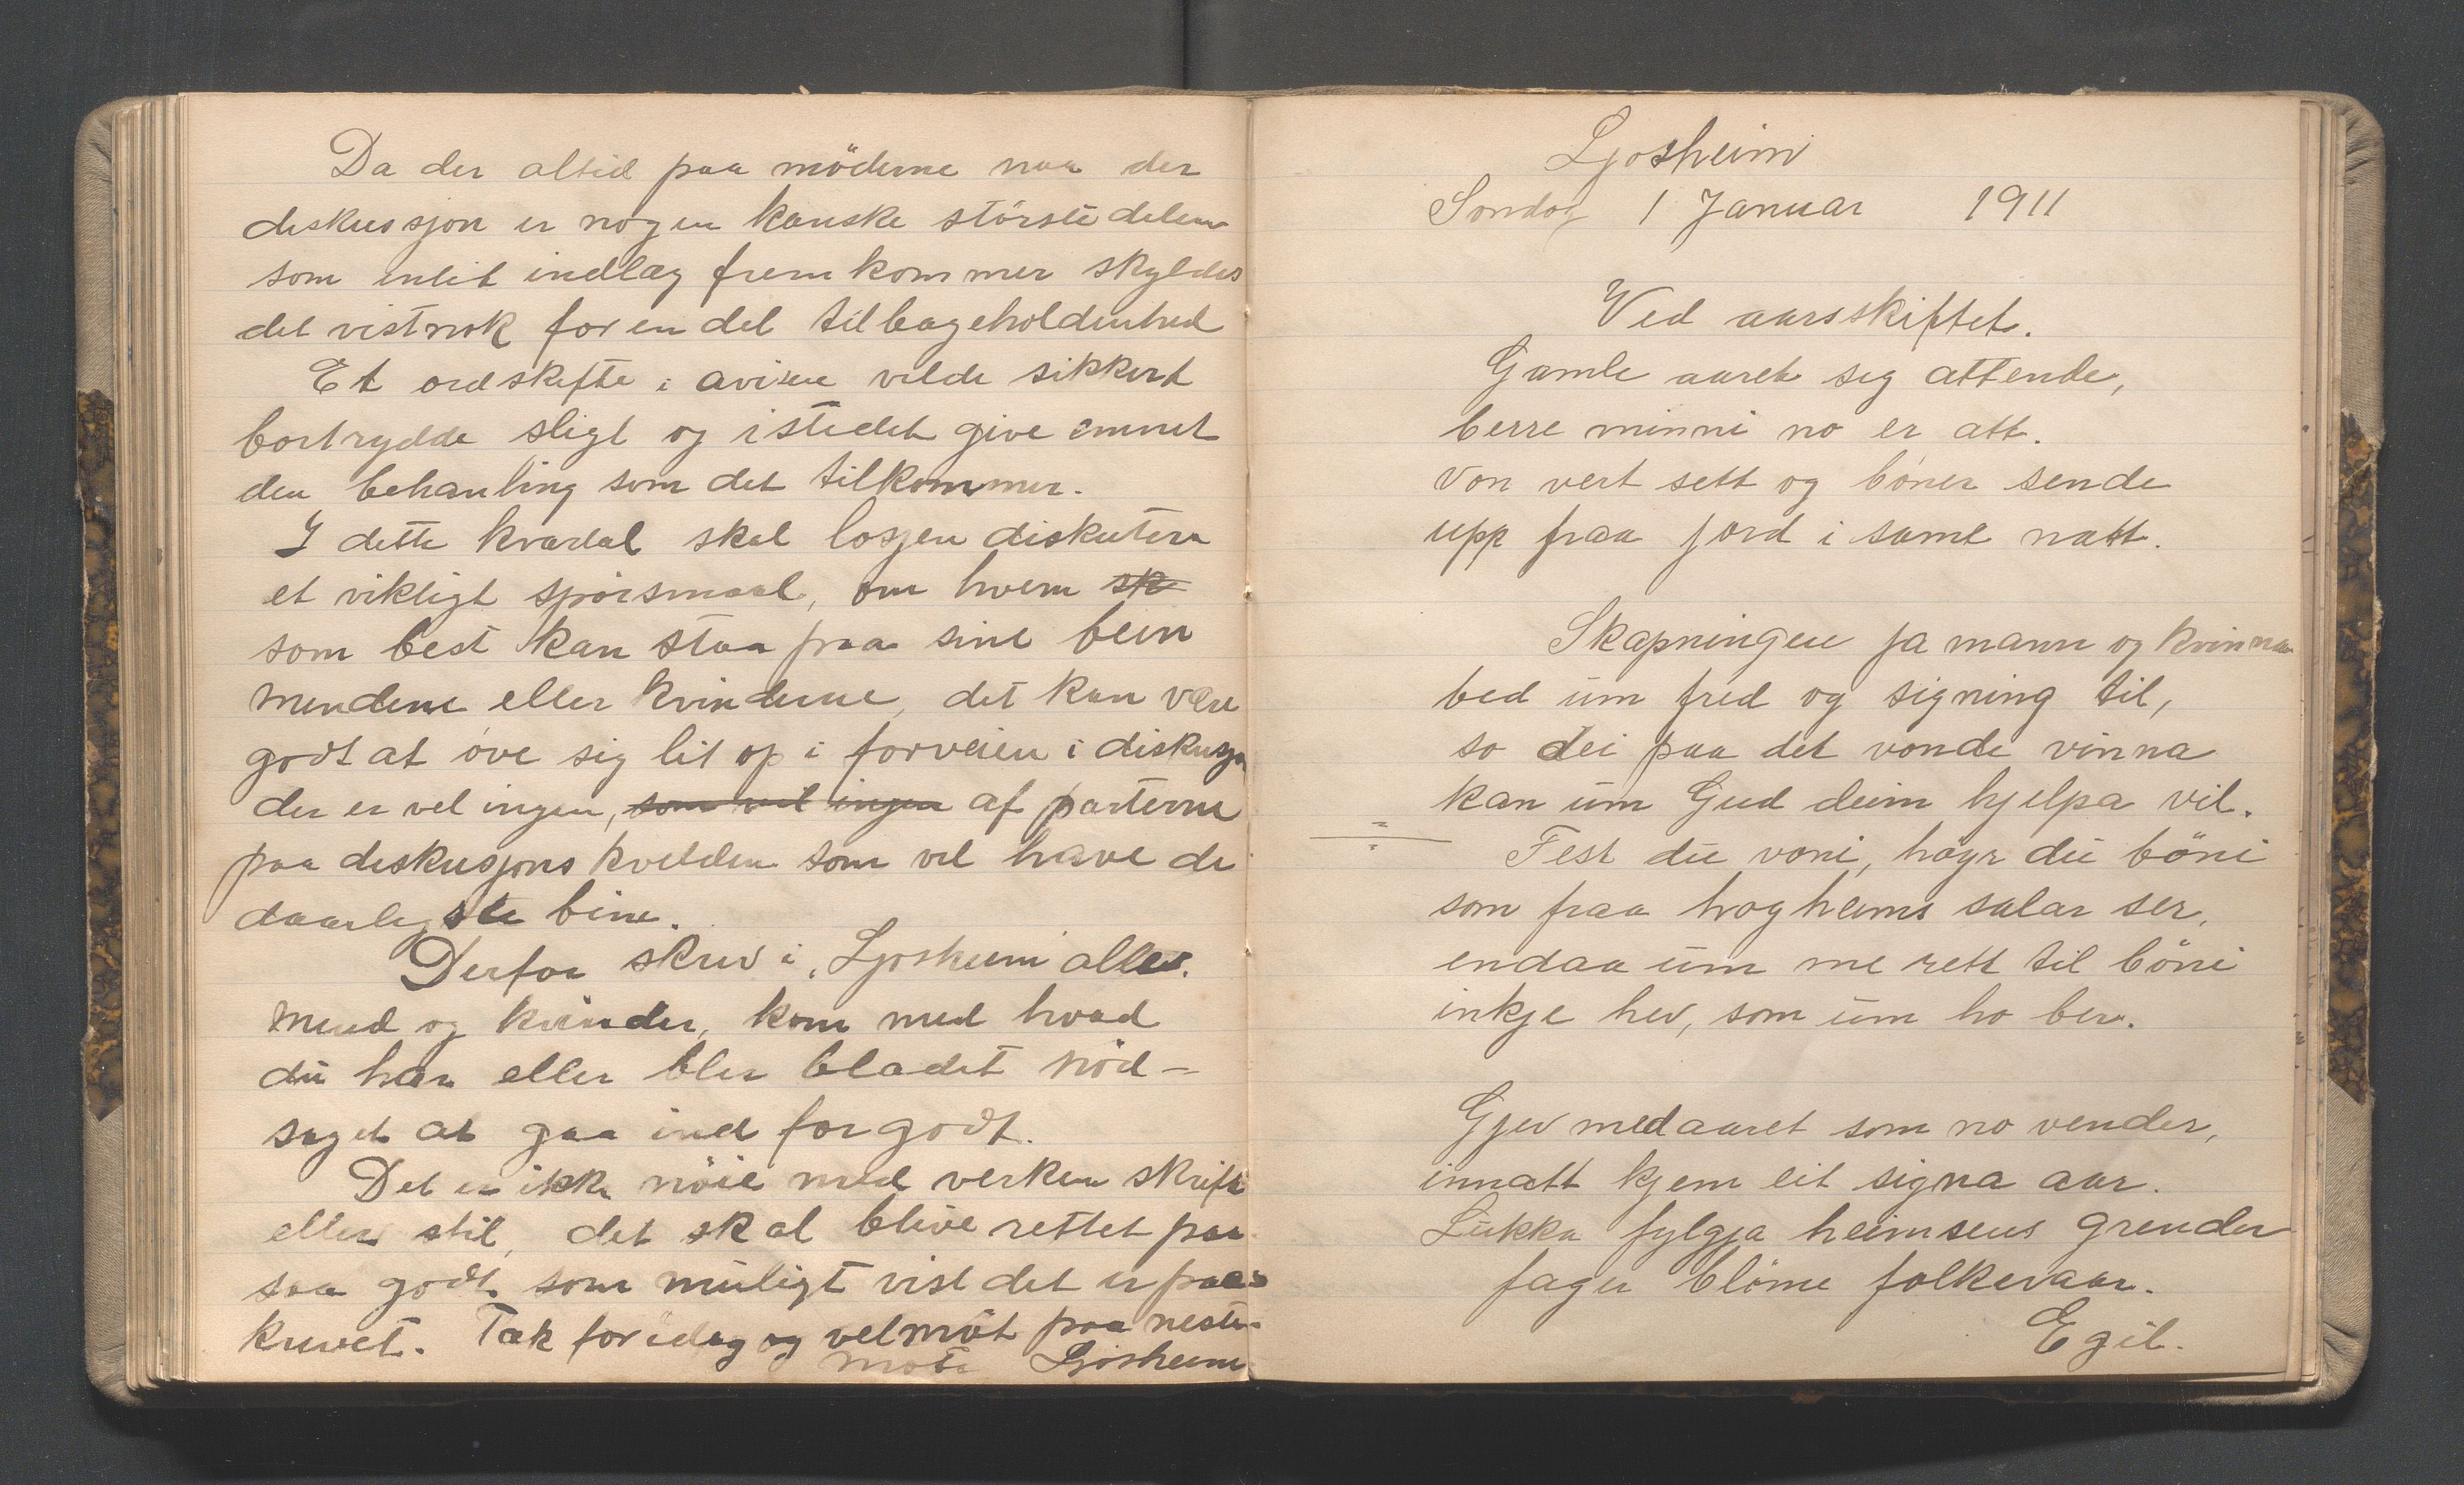 Da der altid paa möderne naar der
diskussjon er nogen kanske störste delen
som intit indlæg fremkommer skyldes
det vistnok for en del tilbageholdenhed
Et ordskifte i avisene vilde sikkert
bortrydde sligt og istedet give emnet
den behanling som det tilkommer.
I dette kvartal skal losjen diskutere
et viktigt spörsmaal, om hvem sk
som best kan staa paa sine bein
mendene eller kvinderne, det kan være
godt at öve sig lit op i forveien i diskusjon
der er vel ingen, som vil ingen af parterne
paa diskusjons kvelden som vil have de
daarligste bine.
Derfor skriv i "Ljosheim" aller.
mend og kvinder, kom med hvad
du har eller bler bladet nöd-
saget at gaa ind for godt.
Det er ikke nöie med verken skrift
eller stil, det skal blive rettet paa
saa godt som muligt vist det er paa-
krevet. Tak for idag og velmöt paa neste
möte Ljosheim
Ljosheim
Söndag 1 Januar 1911
Ved aarsskiftet.
Gamle aaret seg attende,
berre minni no er att.
Von vert sett og böner sende
upp fraa jord i same natt.
Skapningen ja mann og kvinna
bed um fred og signing til,
so dei paa det vonde vinna
kan um Gud deim hjelpa vil.
Fest du voni, höyr du böni
som fraa hogheims salar ser,
endaa um me rett til böni
inkje hev, som um ho ber.
Gjev med aaret som no vender,
innatt kjem eit signa aar.
Lukka fylgja heimsens grender
fager blöme folkevaar.
Egil.